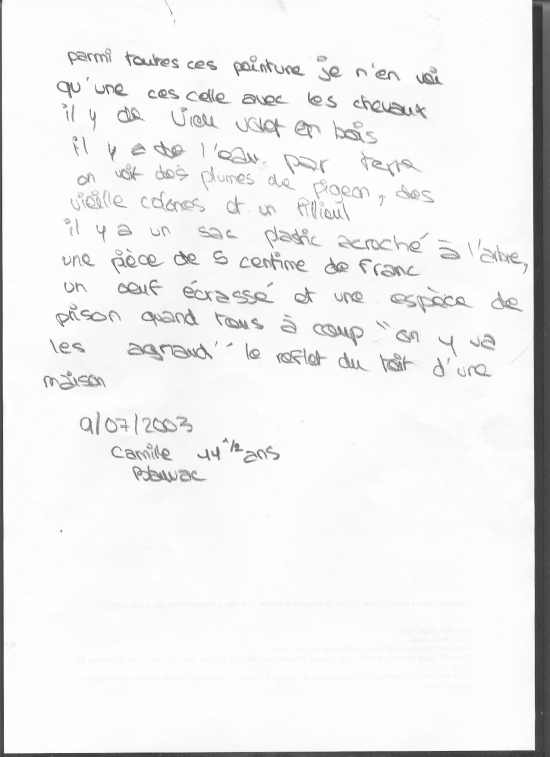 parmi toutes ces peinture je n'en voi
qu'une ces celle avec les chevaux
il y de vieu volet en bois
il y a de l'eau par terre
on voit des plumes de pigeon, des
vieille colones et un filleul
il y a un sac plastic acroché à l'arbre,
une pièce de 5 centime de franc
un oeuf écrassé et une espèce de
prison quand tous à coup "on y va
les agnaud" le reflet du toit d'une
maison
9/07/2003
Camille 11 1/2 ans